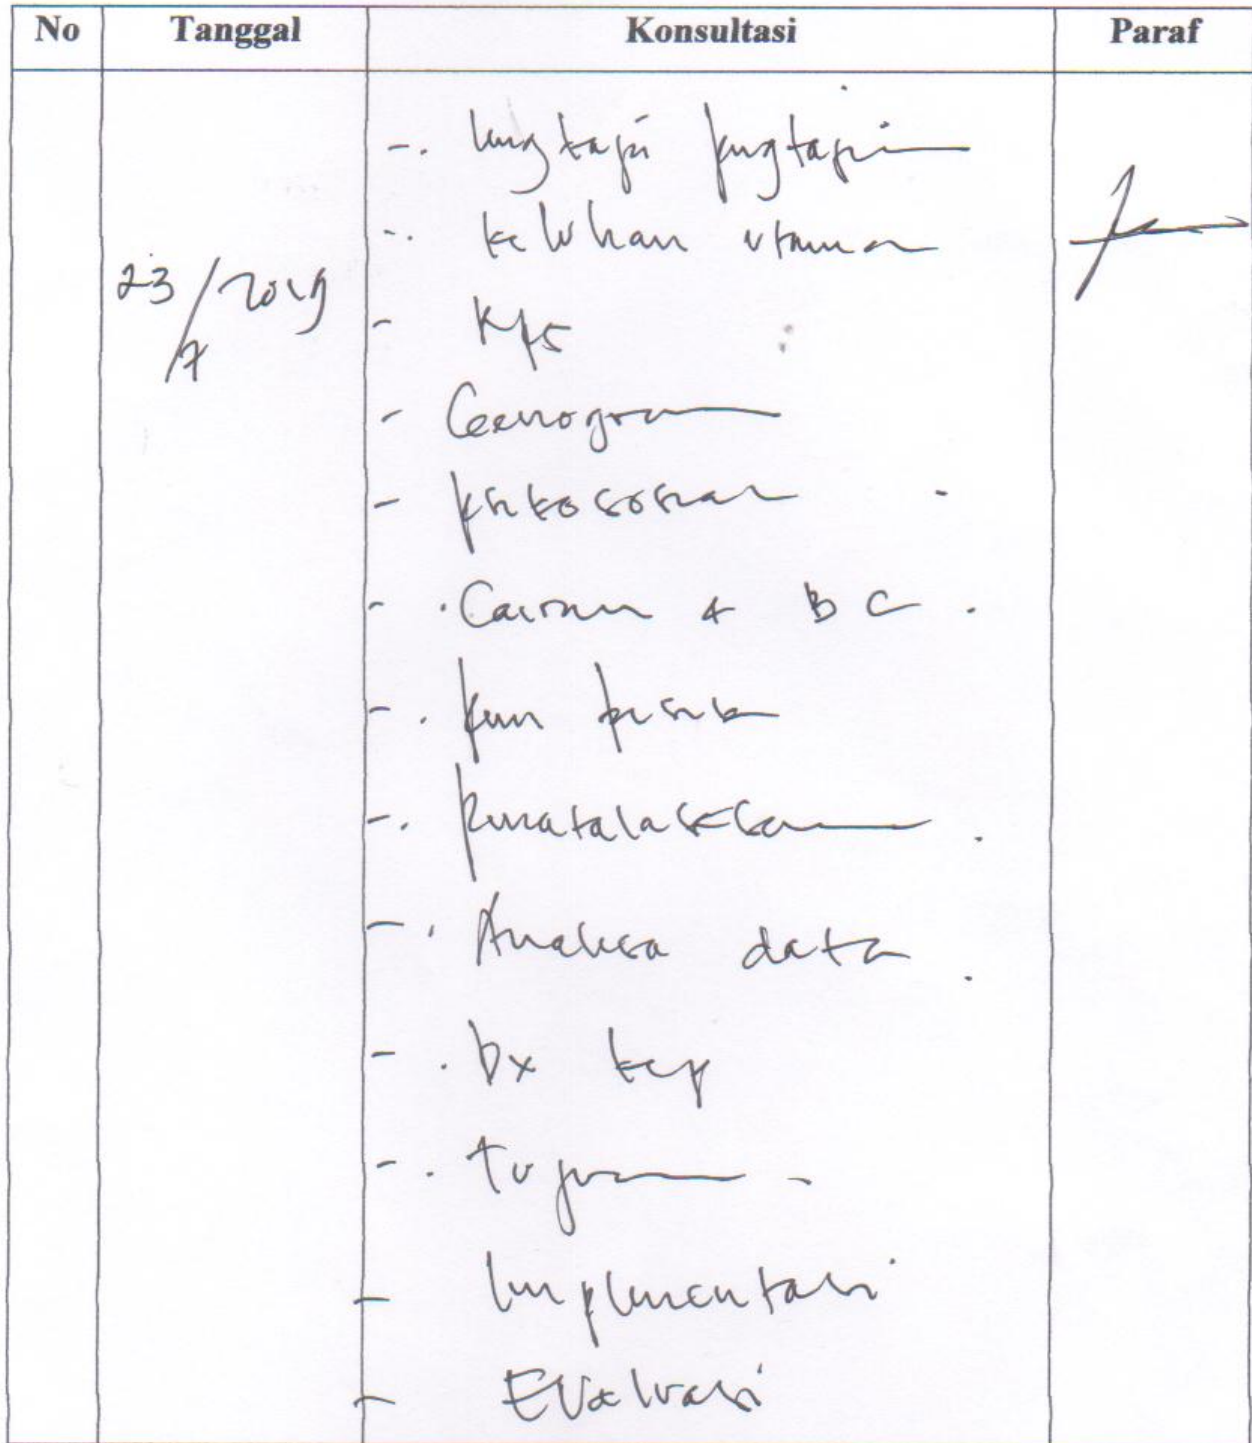 No Tanggal Konsultasi Paraf
- lengkapi pengkajian
- keluhan utama
23/7 2019
- Genogram
- psikososial
- Cairan & BC
- pem fisik
- penatalaksanaan
- Analisa data
- Dx kep
- tujuan
- Implementasi
- Evaluasi